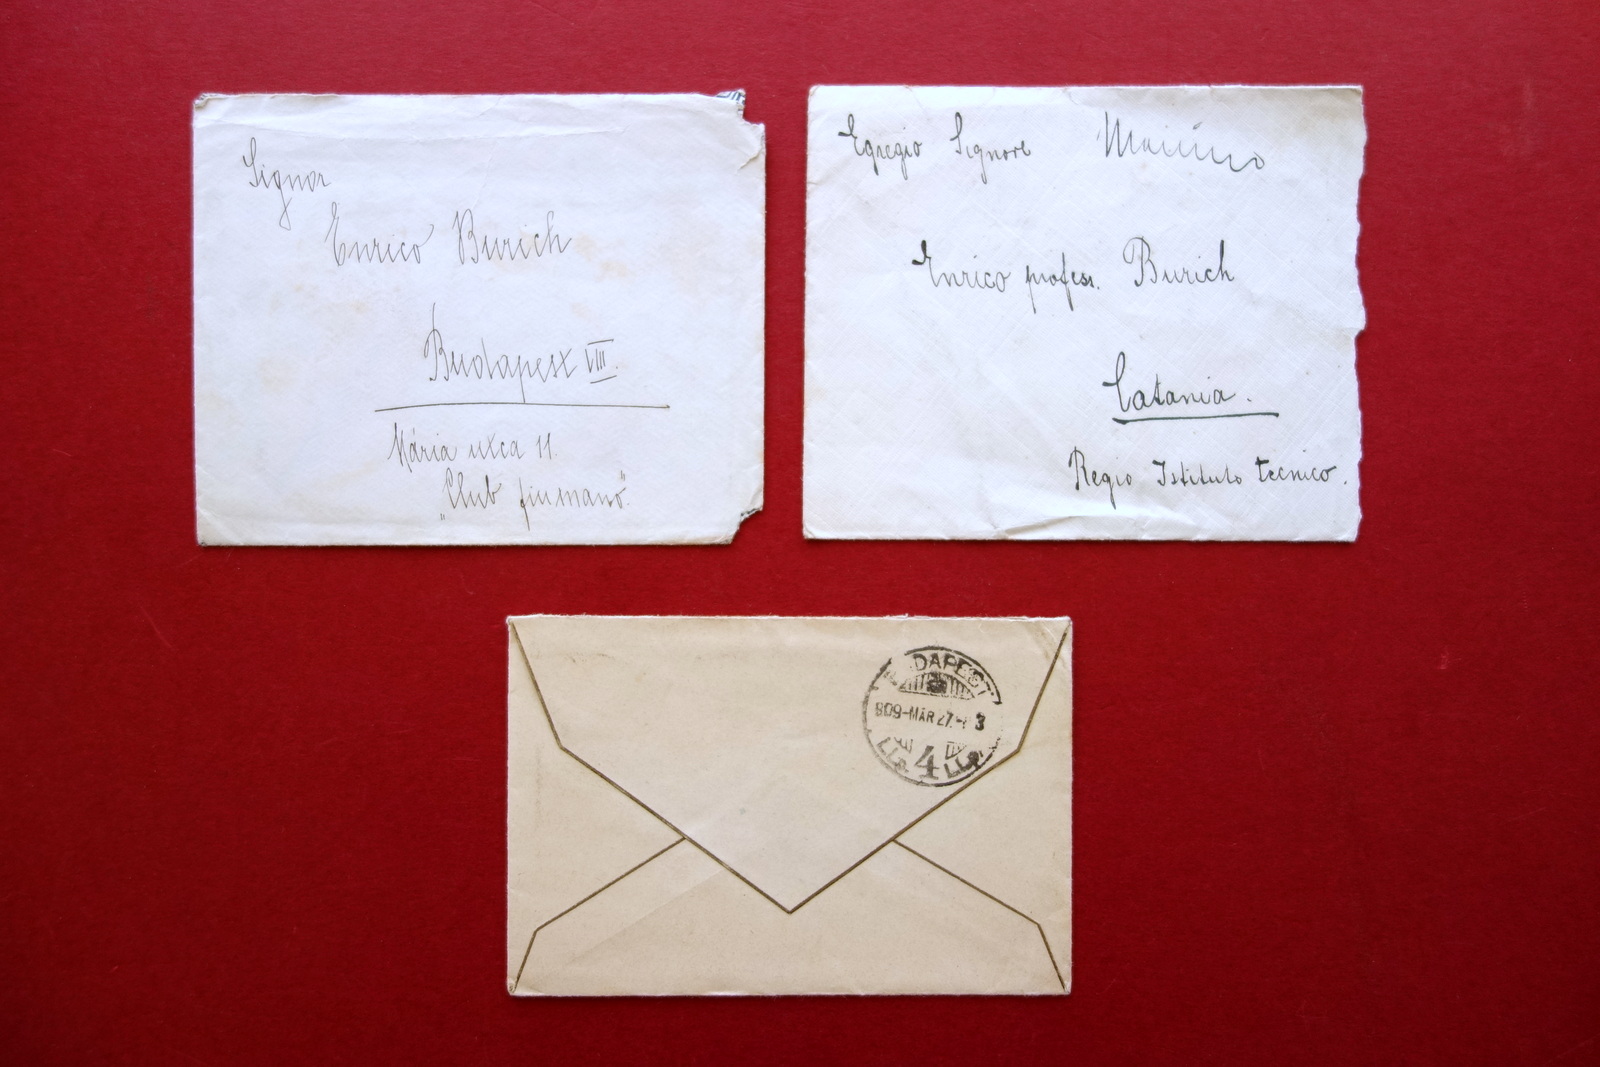 Signor
Enrico Burich
Budapest VIII.
Mária utca 11.
„Club fiumano”
Egregio Signore
Enrico profess. Burich
Catania.
Regio Istituto tecnico.
BUDAPEST
909-MÁR 27.
4